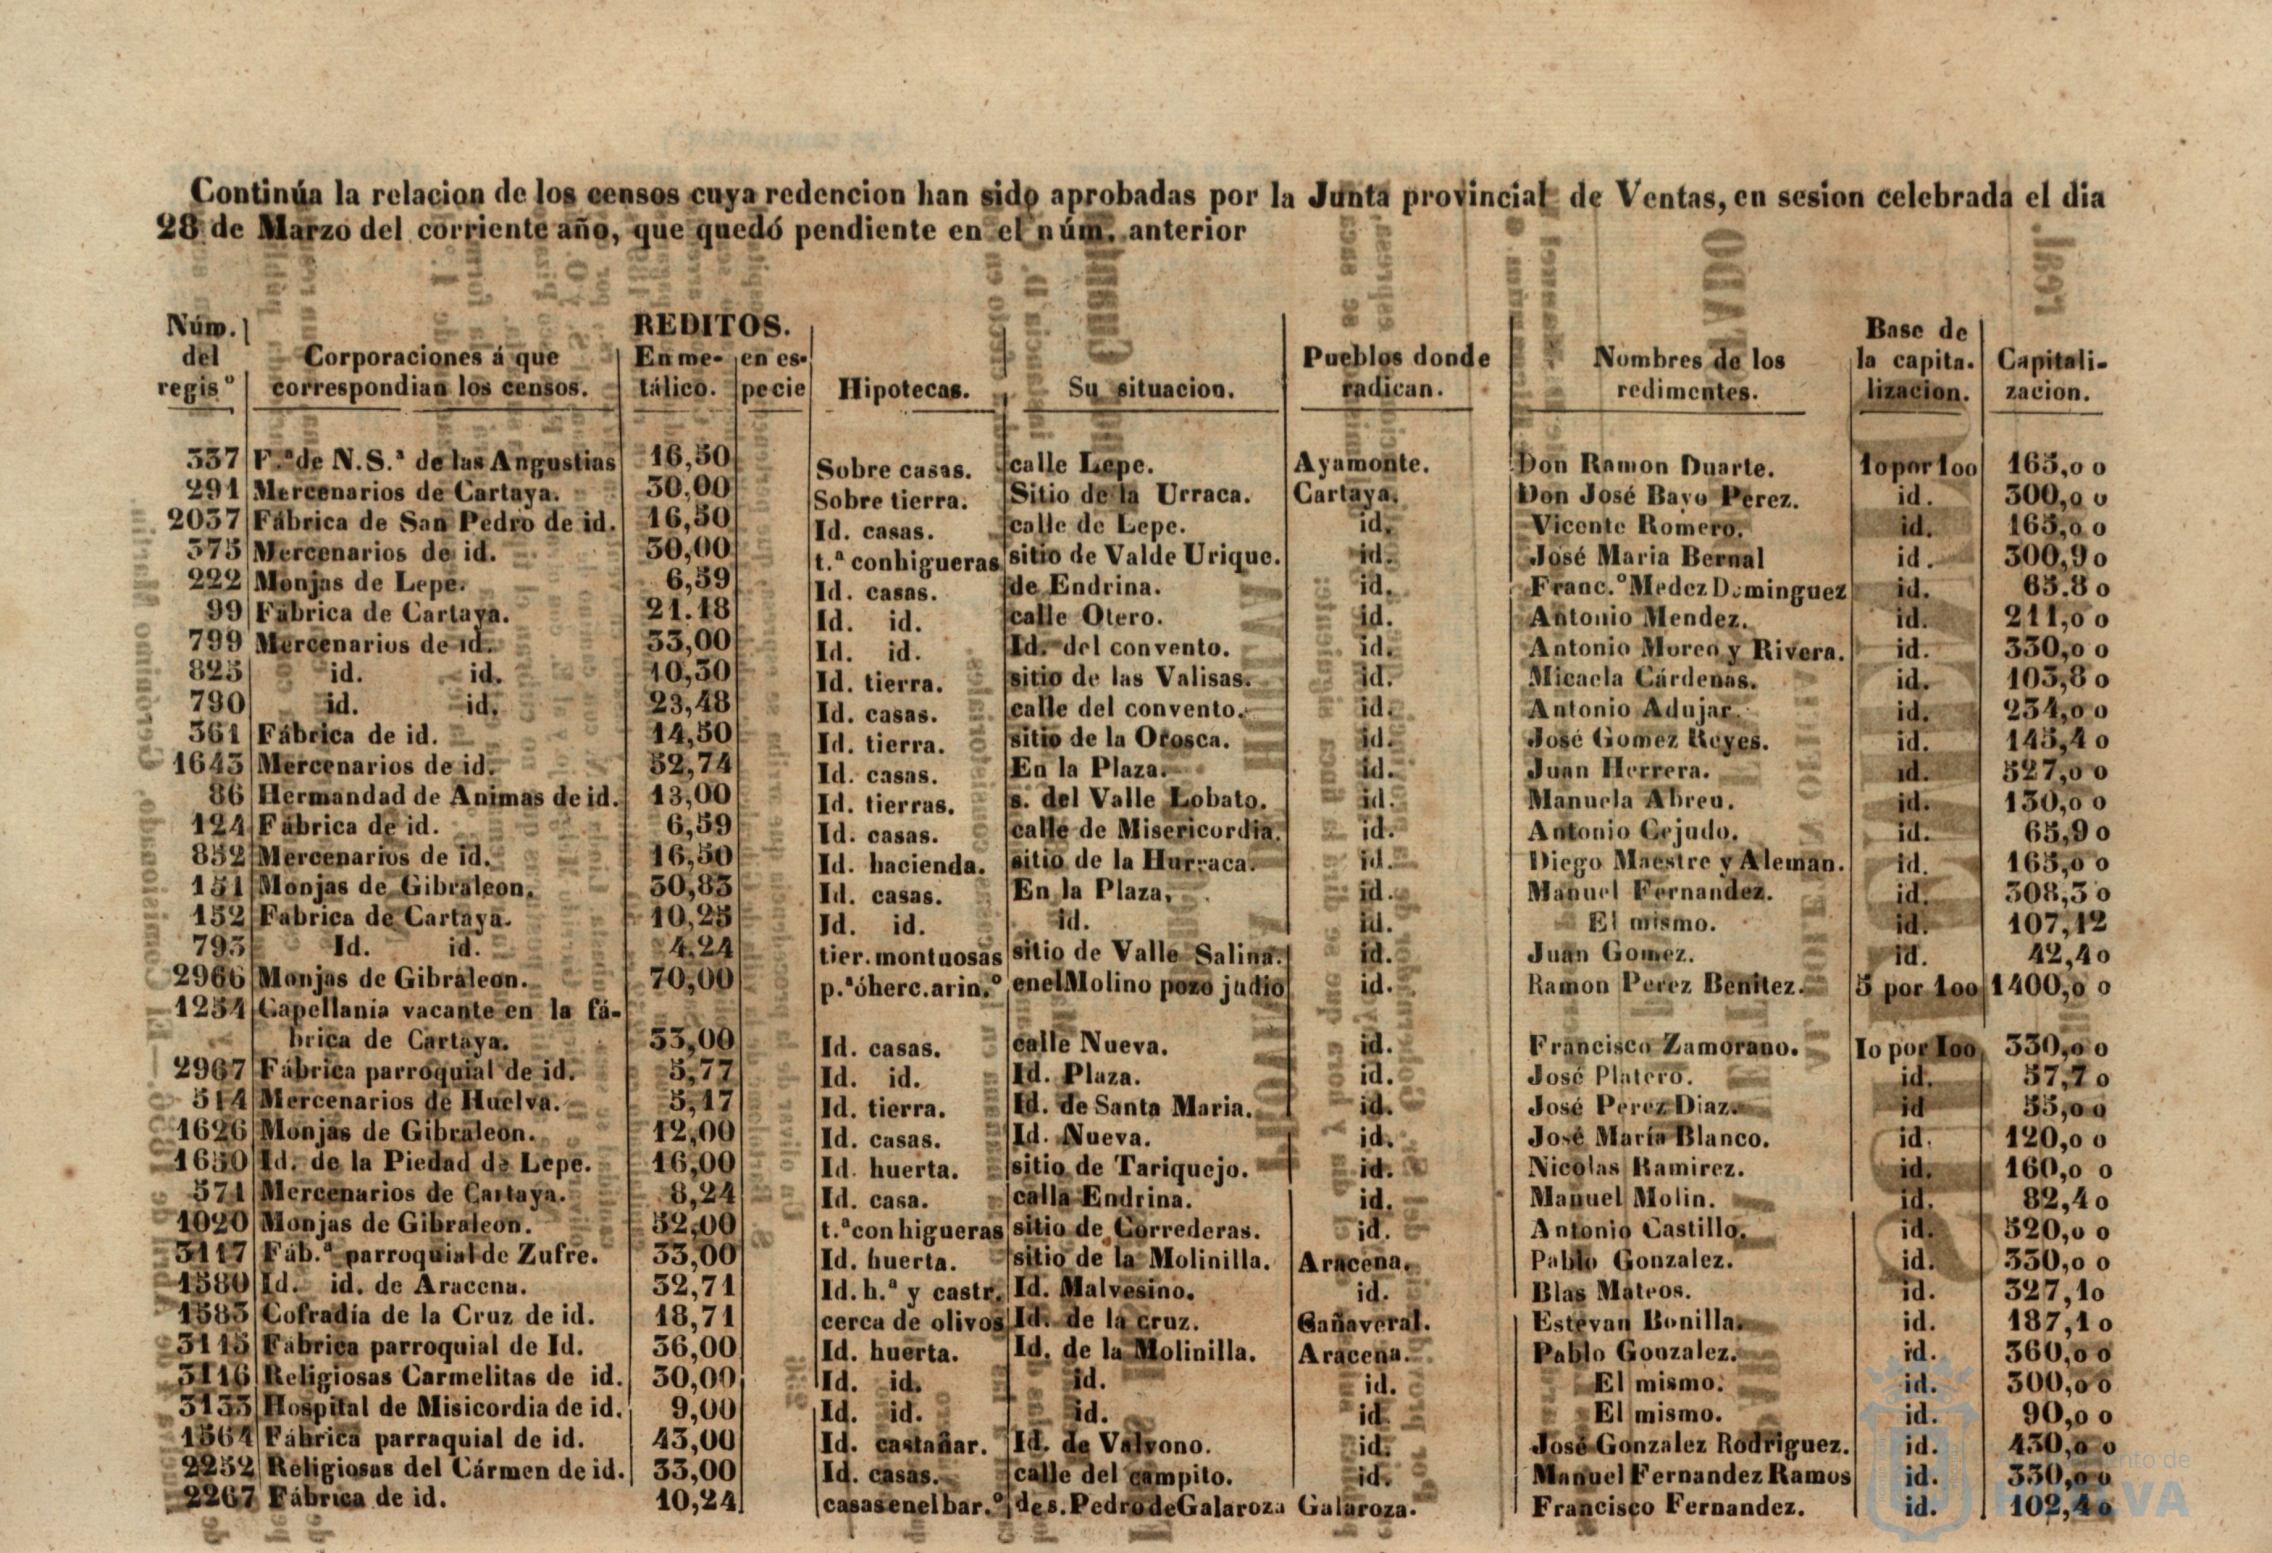 Continúa la relacion de los censos cuya redencion han sido aprobadas por la Junta provincial de Ventas, en sesion celebrada el dia
28 de Marzo del corriente año, que quedó pendiente en el núm. anterior
Núm. del regis° Corporaciones á que correspondian los censos. REDITOS. En me-tálico. en es-pecie Hipotecas. Su situacion. Pueblos donde radican. Nombres de los redimentes. Base de la capita-lizacion. Capitali-zacion.
337 F.ª de N. S.ª de las Angustias 16,50 Sobre casas. calle Lepe. Ayamonte. Don Ramon Duarte. 1o por 1oo 165,o o
291 Mercenarios de Cartaya. 30,00 Sobre tierra. Sitio de la Urraca. Cartaya. Don José Bayo Perez. id. 300,o o
2037 Fábrica de San Pedro de id. 16,50 Id. casas. calle de Lepe. id. Vicente Romero. id. 165,o o
375 Mercenarios de id. 30,00 t.ª conhigueras sitio de Valde Urique. id. José Maria Bernal id. 300,9 o
222 Monjas de Lepe. 6,59 Id. casas. de Endrina. id. Franc.º Medez Dominguez id. 65.8 o
99 Fabrica de Cartaya. 21.18 Id. id. calle Otero. id. Antonio Mendez. id. 211,o o
799 Mercenarios de id. 33,00 Id. id. Id. del convento. id. Antonio Moreo y Rivera. id. 330,o o
825 id. id. 10,30 Id. tierra. sitio de las Valisas. id. Micaela Cárdenas. id. 103,8 o
790 id. id. 23,48 Id. casas. calle del convento. id. Antonio Adujar. id. 234,o o
361 Fábrica de id. 14,50 Id. tierra. sitio de la Orosca. id. José Gomez Reyes. id. 145,4 o
1643 Mercenarios de id. 52,74 Id. casas. En la Plaza. id. Juan Herrera. id. 527,o o
86 Hermandad de Animas de id. 13,00 Id. tierras. s. del Valle Lobato. id. Manuela Abreu. id. 130,o o
124 Fabrica de id. 6,59 Id. casas. calle de Misericordia. id. Antonio Cejudo. id. 65,9 o
852 Mercenarios de id. 16,50 Id. hacienda. sitio de la Hurraca. id. Diego Maestre y Aleman. id. 165,o o
151 Monjas de Gibraleon. 30,83 Id. casas. En la Plaza, id. Manuel Fernandez. id. 308,3 o
152 Fabrica de Cartaya. 10,25 Id. id. id. id. El mismo. id. 107,12
793 Id. id. 4.24 tier. montuosas sitio de Valle Salina. id. Juan Gomez. id. 42,4 o
2966 Monjas de Gibraleon. 70,00 p.ª óherc.arin.º enel Molino pozo judio id. Ramon Perez Benitez. 5 por 1oo 1400,o o
1254 Capellania vacante en la fá-
brica de Cartaya. 33,00 Id. casas. calle Nueva. id. Francisco Zamorano. 1o por 1oo 330,o o
2967 Fábrica parroquial de id. 5,77 Id. id. Id. Plaza. id. José Platero. id. 57,7 o
514 Mercenarios de Huelva. 5,17 Id. tierra. Id. de Santa Maria. id. José Perez Diaz. id 55,o o
1626 Monjas de Gibraleon. 12,00 Id. casas. Id. Nueva. id. José María Blanco. id. 120,o o
1650 Id. de la Piedad de Lepe. 16,00 Id. huerta. sitio de Tariquejo. id. Nicolas Ramirez. id. 160,o o
571 Mercenarios de Cartaya. 8,24 Id. casa. calla Endrina. id. Manuel Molin. id. 82,4 o
1020 Monjas de Gibraleon. 52,00 t.ª con higueras sitio de Correderas. id. Antonio Castillo. id. 520,o o
3117 Fáb.ª parroquial de Zufre. 33,00 Id. huerta. sitio de la Molinilla. Aracena. Pablo Gonzalez. id. 330,o o
1580 Id. id. de Aracena. 32,71 Id. h.ª y castr. Id. Malvesino. id. Blas Mateos. id. 327,1o
1583 Cofradía de la Cruz de id. 18,71 cerca de olivos Id. de la cruz. Cañaveral. Estevan Bonilla. id. 187,1 o
3115 Fabrica parroquial de Id. 36,00 Id. huerta. Id. de la Molinilla. Aracena. Pablo Gonzalez. id. 360,o o
3116 Religiosas Carmelitas de id. 30,00 Id. id. id. id. El mismo. id. 300,o o
3133 Hospital de Misicordia de id. 9,00 Id. id. id. id El mismo. id. 90,o o
1564 Fábrica parraquial de id. 43,00 Id. castañar. Id. de Valvono. id. José Gonzalez Rodriguez. id. 430,o o
2252 Religiosas del Cármen de id. 33,00 Id. casas. calle del campito. id. Manuel Fernandez Ramos id. 330,o o
2267 Fábrica de id. 10,24 casasenelbar.º de s. Pedro de Galaroza Galaroza. Francisco Fernandez. id. 102,4 o